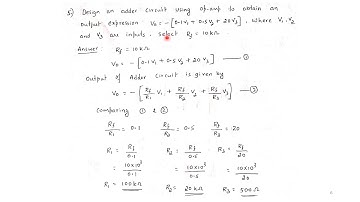 5) Design an adder circuit using op-amp to obtain an
output expression V₀ = -[0.1V₁ + 0.5V₂ + 20V₃]. Where V₁, V₂
and V₃ are inputs. Select Rf = 10kΩ
Answer: Rf = 10kΩ
V₀ = -[0.1V₁ + 0.5V₂ + 20V₃] — ①
Output of Adder Circuit is given by
V₀ = -[Rf/R₁ V₁ + Rf/R₂ V₂ + Rf/R₃ V₃] — ②
Comparing ① & ②
Rf/R₁ = 0.1 Rf/R₂ = 0.5 Rf/R₃ = 20
R₁ = Rf/0.1 R₂ = Rf/0.5 R₃ = Rf/20
= 10×10³/0.1 = 10×10³/0.5 = 10×10³/20
R₁ = 100kΩ R₂ = 20kΩ R₃ = 500Ω